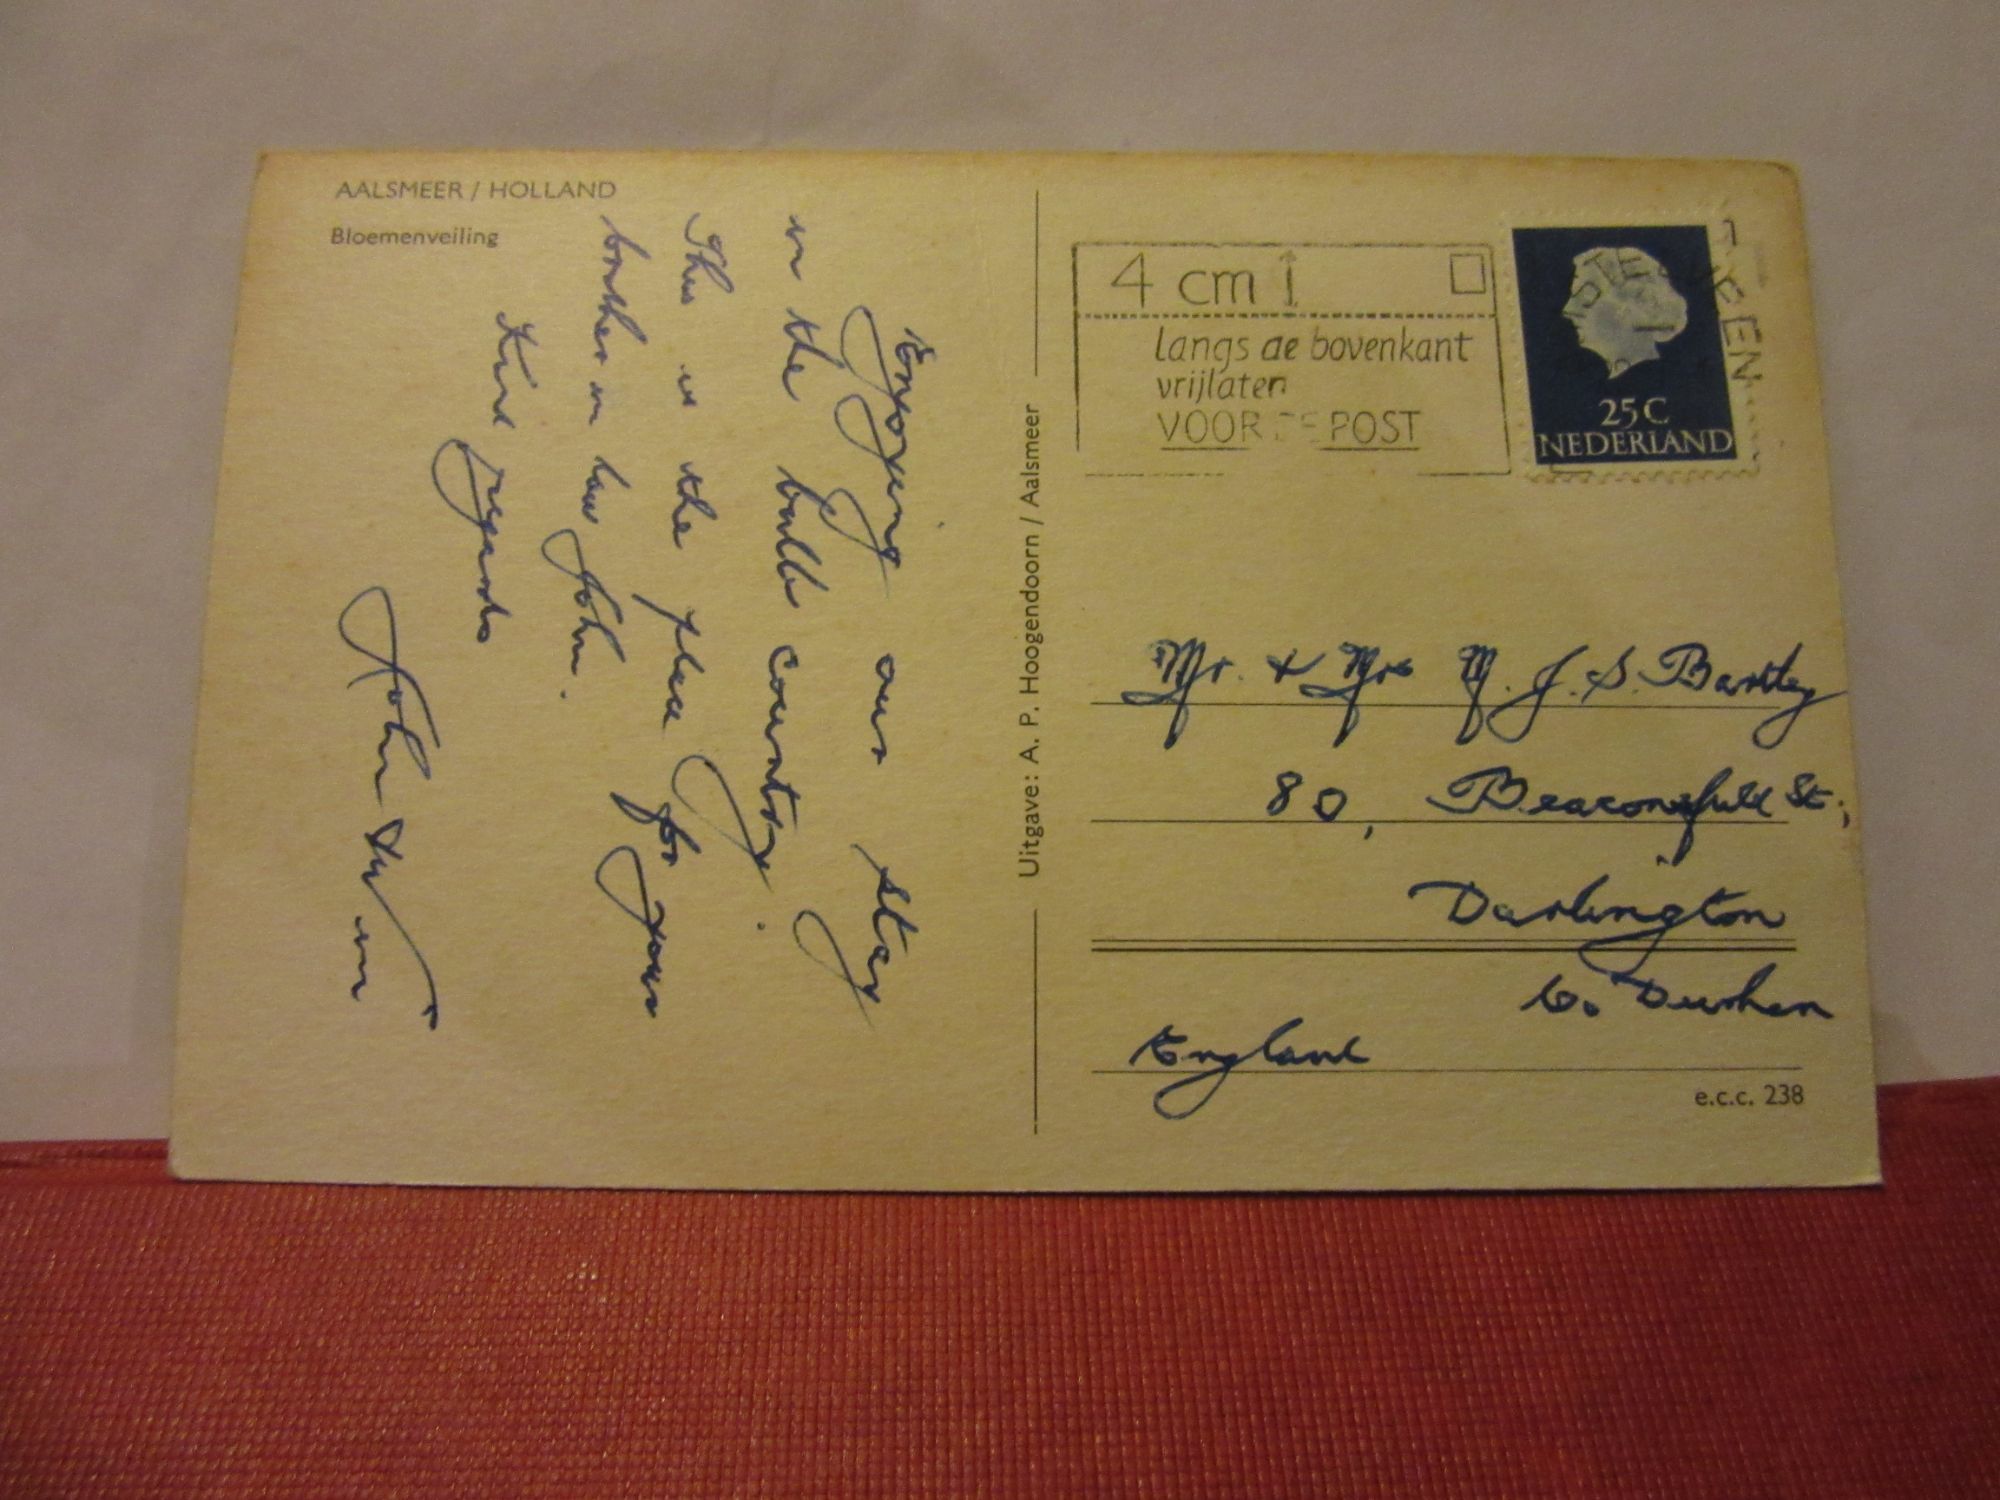 AALSMEER / HOLLAND
Bloemenveiling
Enjoying our stay
in the bulb country.
This is the place for your
brother in law John.
Kind regards
John
Uitgave: A. P. Hoogendoorn / Aalsmeer
4 cm
langs de bovenkant
vrijlaten
VOOR DE POST
25 C
NEDERLAND
Mr. & Mrs M. J. S. Bartley
80, Beaconsfield St.,
Darlington
Co. Durham
England
e.c.c. 238